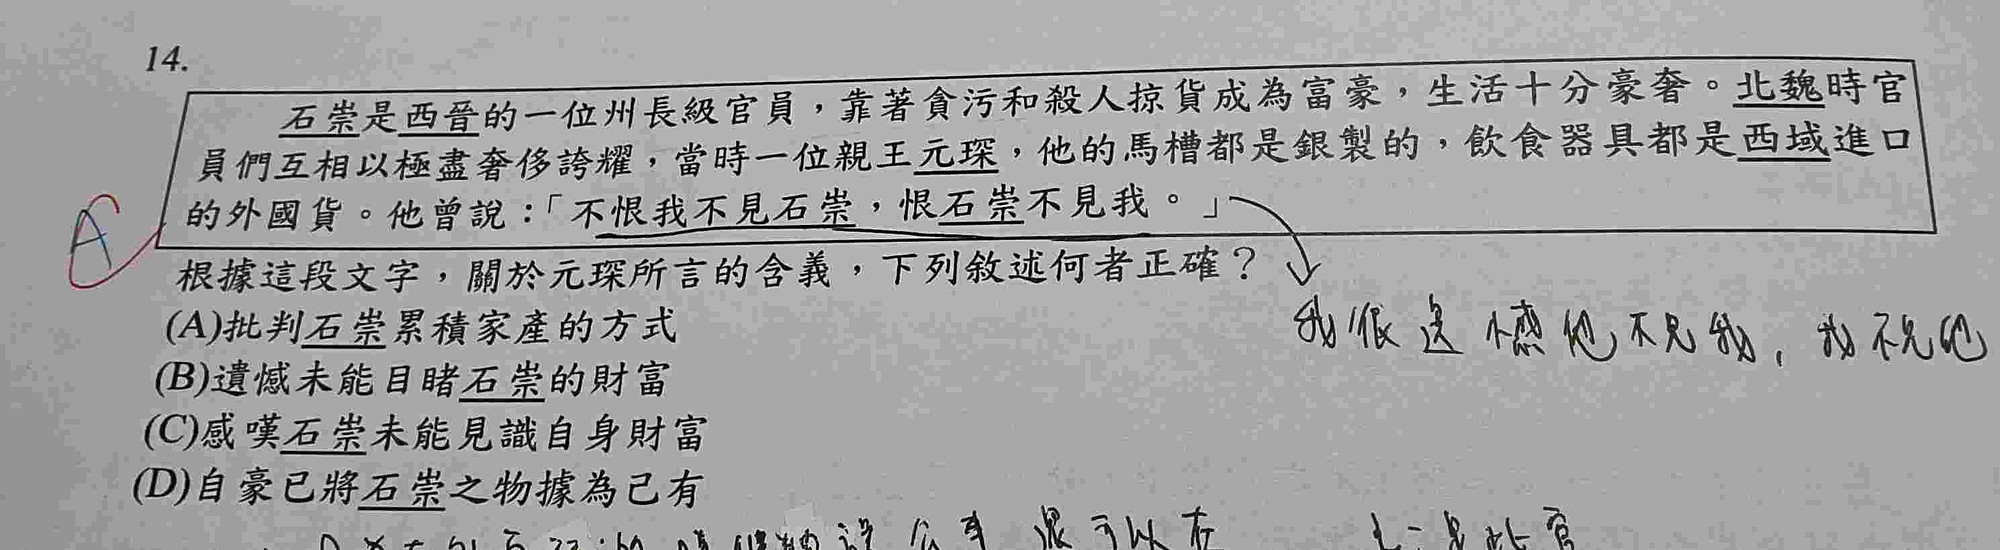 14.
石崇是西晉的一位州長級官員，靠著貪污和殺人掠貨成為富豪，生活十分豪奢。北魏時官
員們互相以極盡奢侈誇耀，當時一位親王元琛，他的馬槽都是銀製的，飲食器具都是西域進口
的外國貨。他曾說：「不恨我不見石崇，恨石崇不見我。」
A
根據這段文字，關於元琛所言的含義，下列敘述何者正確？
我很遺憾他不見我，我不見他
(A)批判石崇累積家產的方式
(B)遺憾未能目睹石崇的財富
(C)感嘆石崇未能見識自身財富
(D)自豪已將石崇之物據為己有